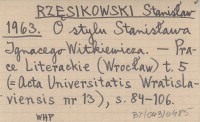 RZĘSIKOWSKI Stanisław
1963. O stylu Stanisława
Ignacego Witkiewicza. — Pra-
ce Literackie (Wrocław) t. 5
(= Acta Universitatis Wratisla-
viensis nr 13), s. 84-106.
WHP